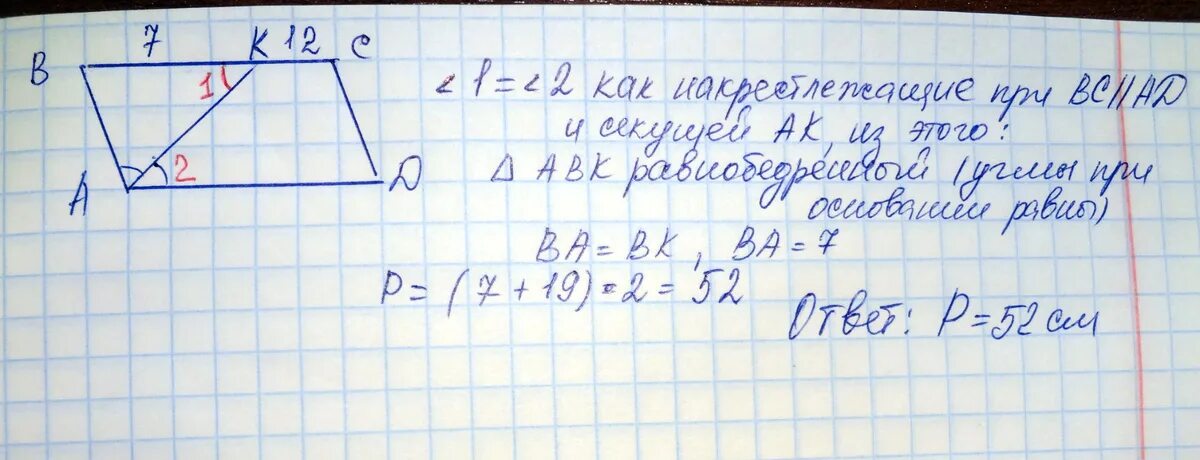 B 7 K 12 C
1
A 2 D
< 1 = < 2 как накрестлежащие при BC || AD
и секущей AK, из этого:
Δ ABK равнобедренный (углы при
основании равны)
BA = BK, BA = 7
P = (7 + 19) · 2 = 52
Ответ: P = 52 см